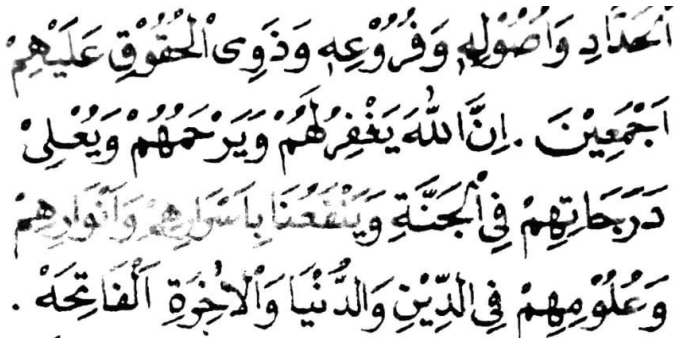 الْحَدَّادِ وَاُصُوْلِهِ وَفُرُوْعِهِ وَذَوِى الْحُقُوْقِ عَلَيْهِمْ
اَجْمَعِيْنَ . اِنَّ اللهَ يَغْفِرُ لَهُمْ وَيَرْحَمُهُمْ وَيُعْلِىْ
دَرَجَاتِهِمْ فِى الْجَنَّةِ وَيَنْفَعُنَا بِاَسْرَارِهِمْ وَاَنْوَارِهِمْ
وَعُلُوْمِهِمْ فِى الدِّيْنِ وَالدُّنْيَا وَالْاٰخِرَةِ اَلْفَاتِحَةْ .